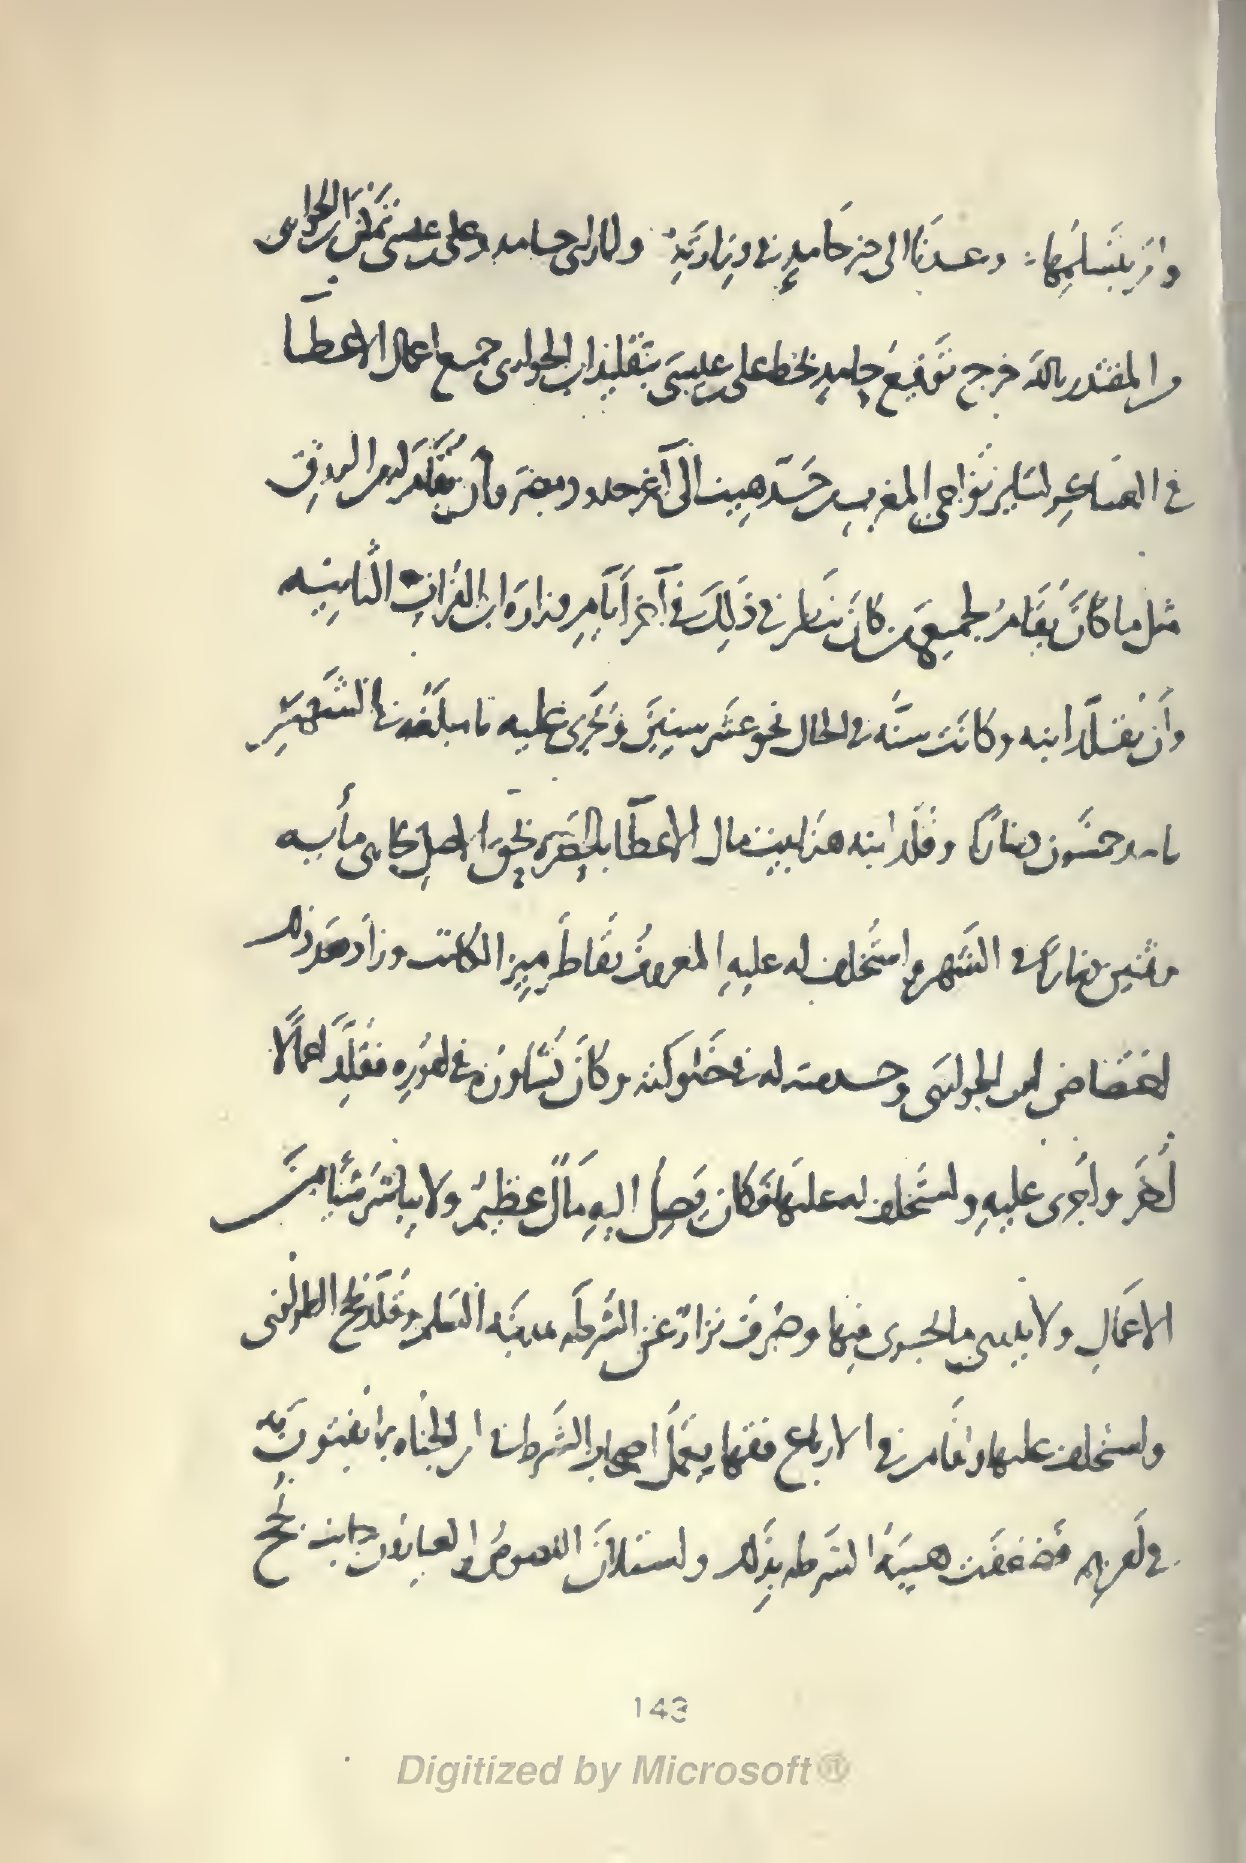 وامر بتسلمها وعدنا الى خبر حامد فى وزارته ولما راى حامد وعلى بن عيسى تمكن ابن الحوارى
من المقتدر بالله خرج توقيع حامد بخط على بن عيسى بتقليد ابن الحوارى جميع اعمال الاعطآ
فى العساكر لسائر نواحى المغرب من حد هيت الى آخر حدود مصر وأن يقام له من الرزق
مثل ما كان يقام لجميع من كان يناظر فى ذلك فى آخر أيام وزارة ابن الفرات الثانيه
وأن يقلد ابنه وكانت سنه فى الحال نحو عشر سنين ويجرى عليه ما مبلغه فى الشهر
مايه وخمسون دينارا وقلد ابنه هذا بيت مال الاعطآ بالحضره بحق الاصل بجارى مأيه
دينارا فى الشهر واستخلف له عليه المعروف بقاطرميز الكاتب وزاد بعد ذلك
اختصاص ابن الحوارى وخدمته له فى خلوته وكان يشاوره فى اموره فقلد اعمالا
أخر وأجرى عليه واستخلف له عليها فكان يصل اليه مال عظيم ولا يباشر شيئا من
الاعمال ولا يدرى ما الجارى فيها وصرف نزار عن الشرطه بمدينه السلم وقلد نجح الطولونى
واستخلف عليها واقام فى الارباع فقها يعمل اصحاب الشرط فى امر الجناه بما يفتون به
فى أمرهم فضعفت هيبة الشرطه بذلك واستلان اللصوص والعيارون جانب نجح
143
Digitized by Microsoft®